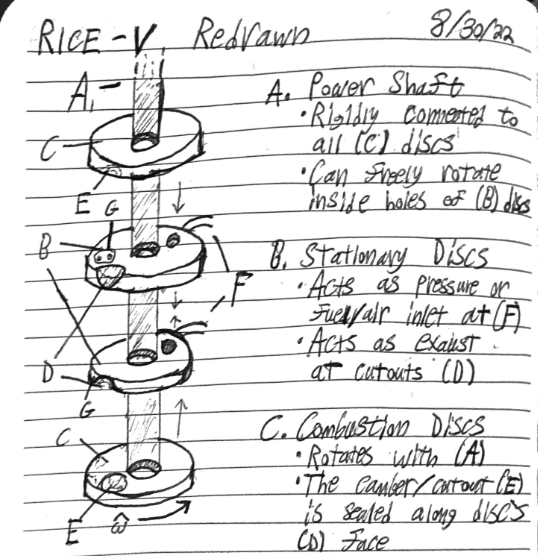 RICE-V Redrawn 8/30/22
A. Power Shaft
• Rigidly connected to
all (C) discs
• Can freely rotate
inside holes of (B) discs
B. Stationary Discs
• Acts as pressure or
fuel/air inlet at (F)
• Acts as exaust
at cutouts (D)
C. Combustion Discs
• Rotates with (A)
• The camber/cutout (E)
is sealed along disc's
(D) face
A,
C
E
G
B
F
D
G
C
E
ω̂